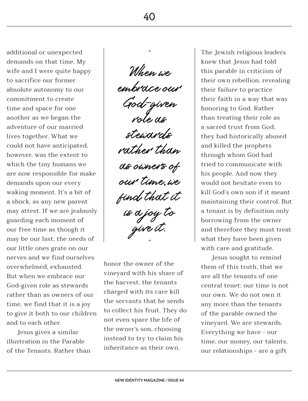 40
additional or unexpected
demands on that time. My
wife and I were quite happy
to sacrifice our former
absolute autonomy to our
commitment to create
time and space for one
another as we began the
adventure of our married
lives together. What we
could not have anticipated,
however, was the extent to
which the tiny humans we
are now responsible for make
demands upon our every
waking moment. It's a bit of
a shock, as any new parent
may attest. If we are jealously
guarding each moment of
our free time as though it
may be our last, the needs of
our little ones grate on our
nerves and we find ourselves
overwhelmed, exhausted.
But when we embrace our
God-given role as stewards
rather than as owners of our
time, we find that it is a joy
to give it both to our children
and to each other.
Jesus gives a similar
illustration in the Parable
of the Tenants. Rather than
"
When we
embrace our
God-given
role as
stewards
rather than
as owners of
our time, we
find that it
is a joy to
give it.
"
honor the owner of the
vineyard with his share of
the harvest, the tenants
charged with its care kill
the servants that he sends
to collect his fruit. They do
not even spare the life of
the owner's son, choosing
instead to try to claim his
inheritance as their own.
The Jewish religious leaders
knew that Jesus had told
this parable in criticism of
their own rebellion, revealing
their failure to practice
their faith in a way that was
honoring to God. Rather
than treating their role as
a sacred trust from God,
they had historically abused
and killed the prophets
through whom God had
tried to communicate with
his people. And now they
would not hesitate even to
kill God's own son if it meant
maintaining their control. But
a tenant is by definition only
borrowing from the owner
and therefore they must treat
what they have been given
with care and gratitude.
Jesus sought to remind
them of this truth, that we
are all the tenants of one
central tenet: our time is not
our own. We do not own it
any more than the tenants
of the parable owned the
vineyard. We are stewards.
Everything we have - our
time, our money, our talents,
our relationships - are a gift
NEW IDENTITY MAGAZINE / ISSUE 44